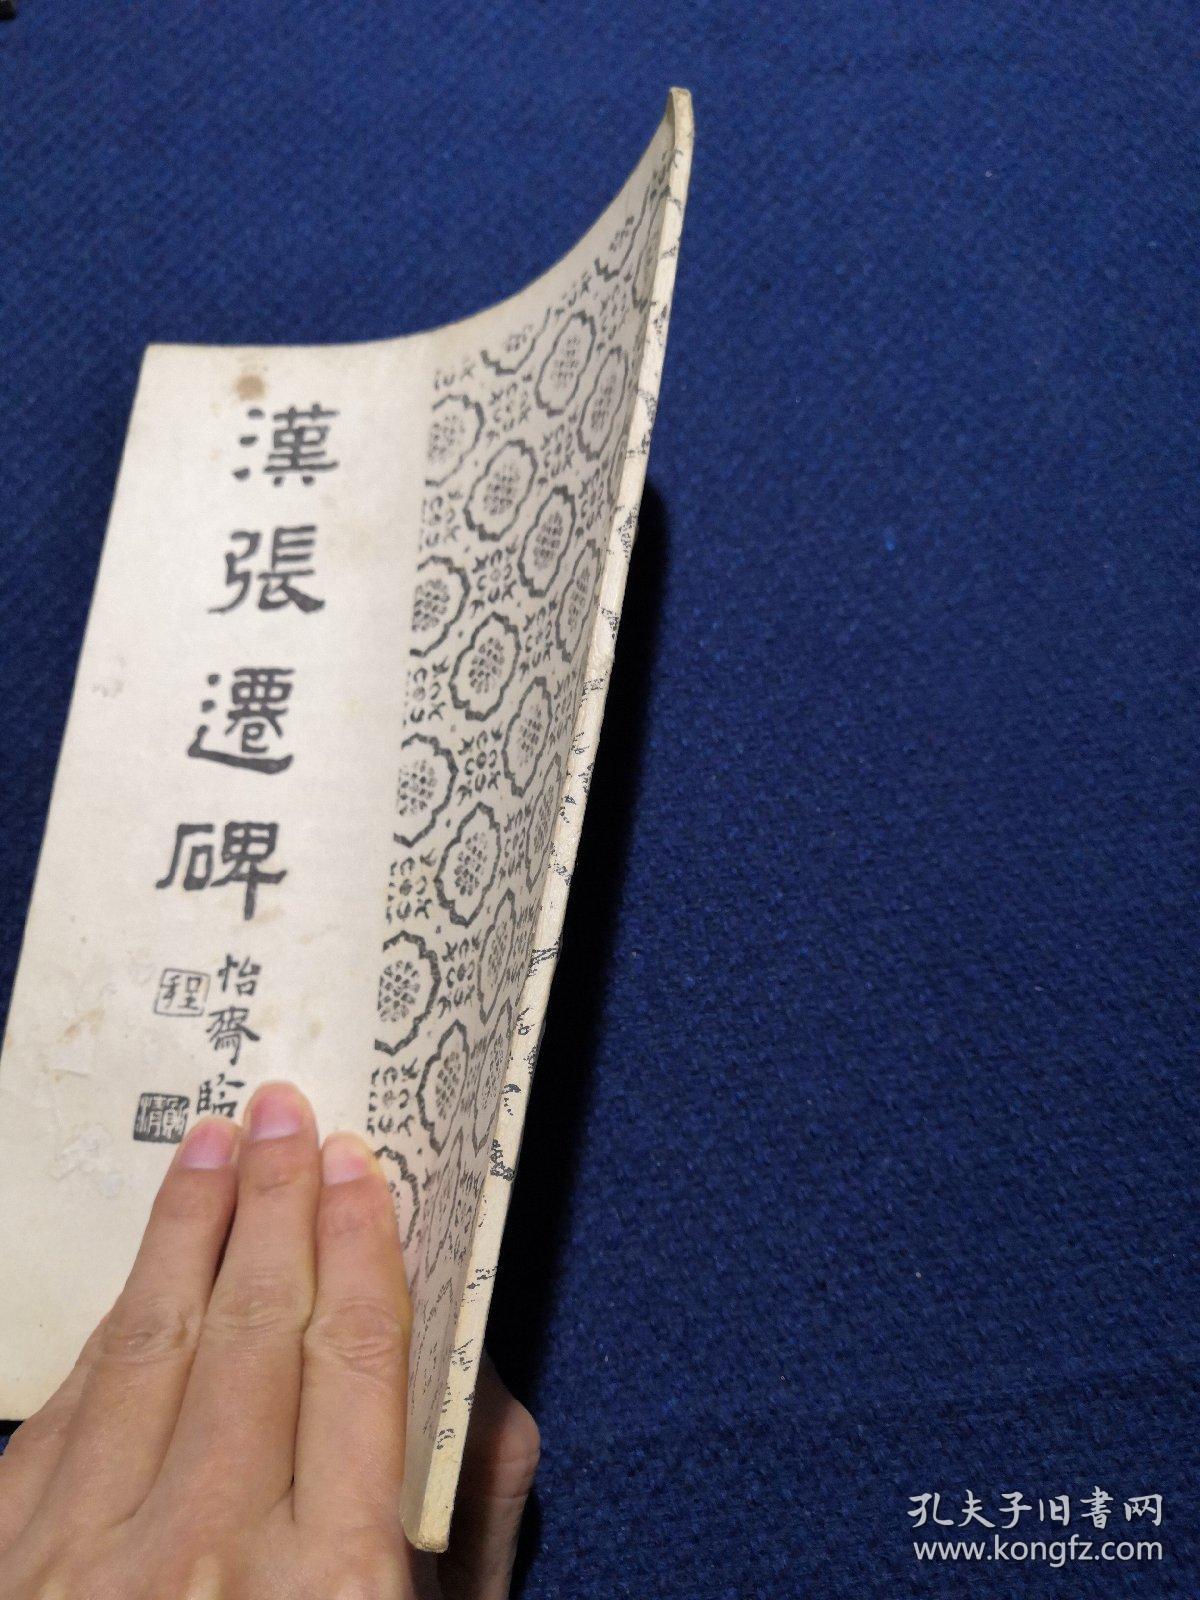 漢張遷碑
怡齋臨
程
孔夫子旧書网
www.kongfz.com